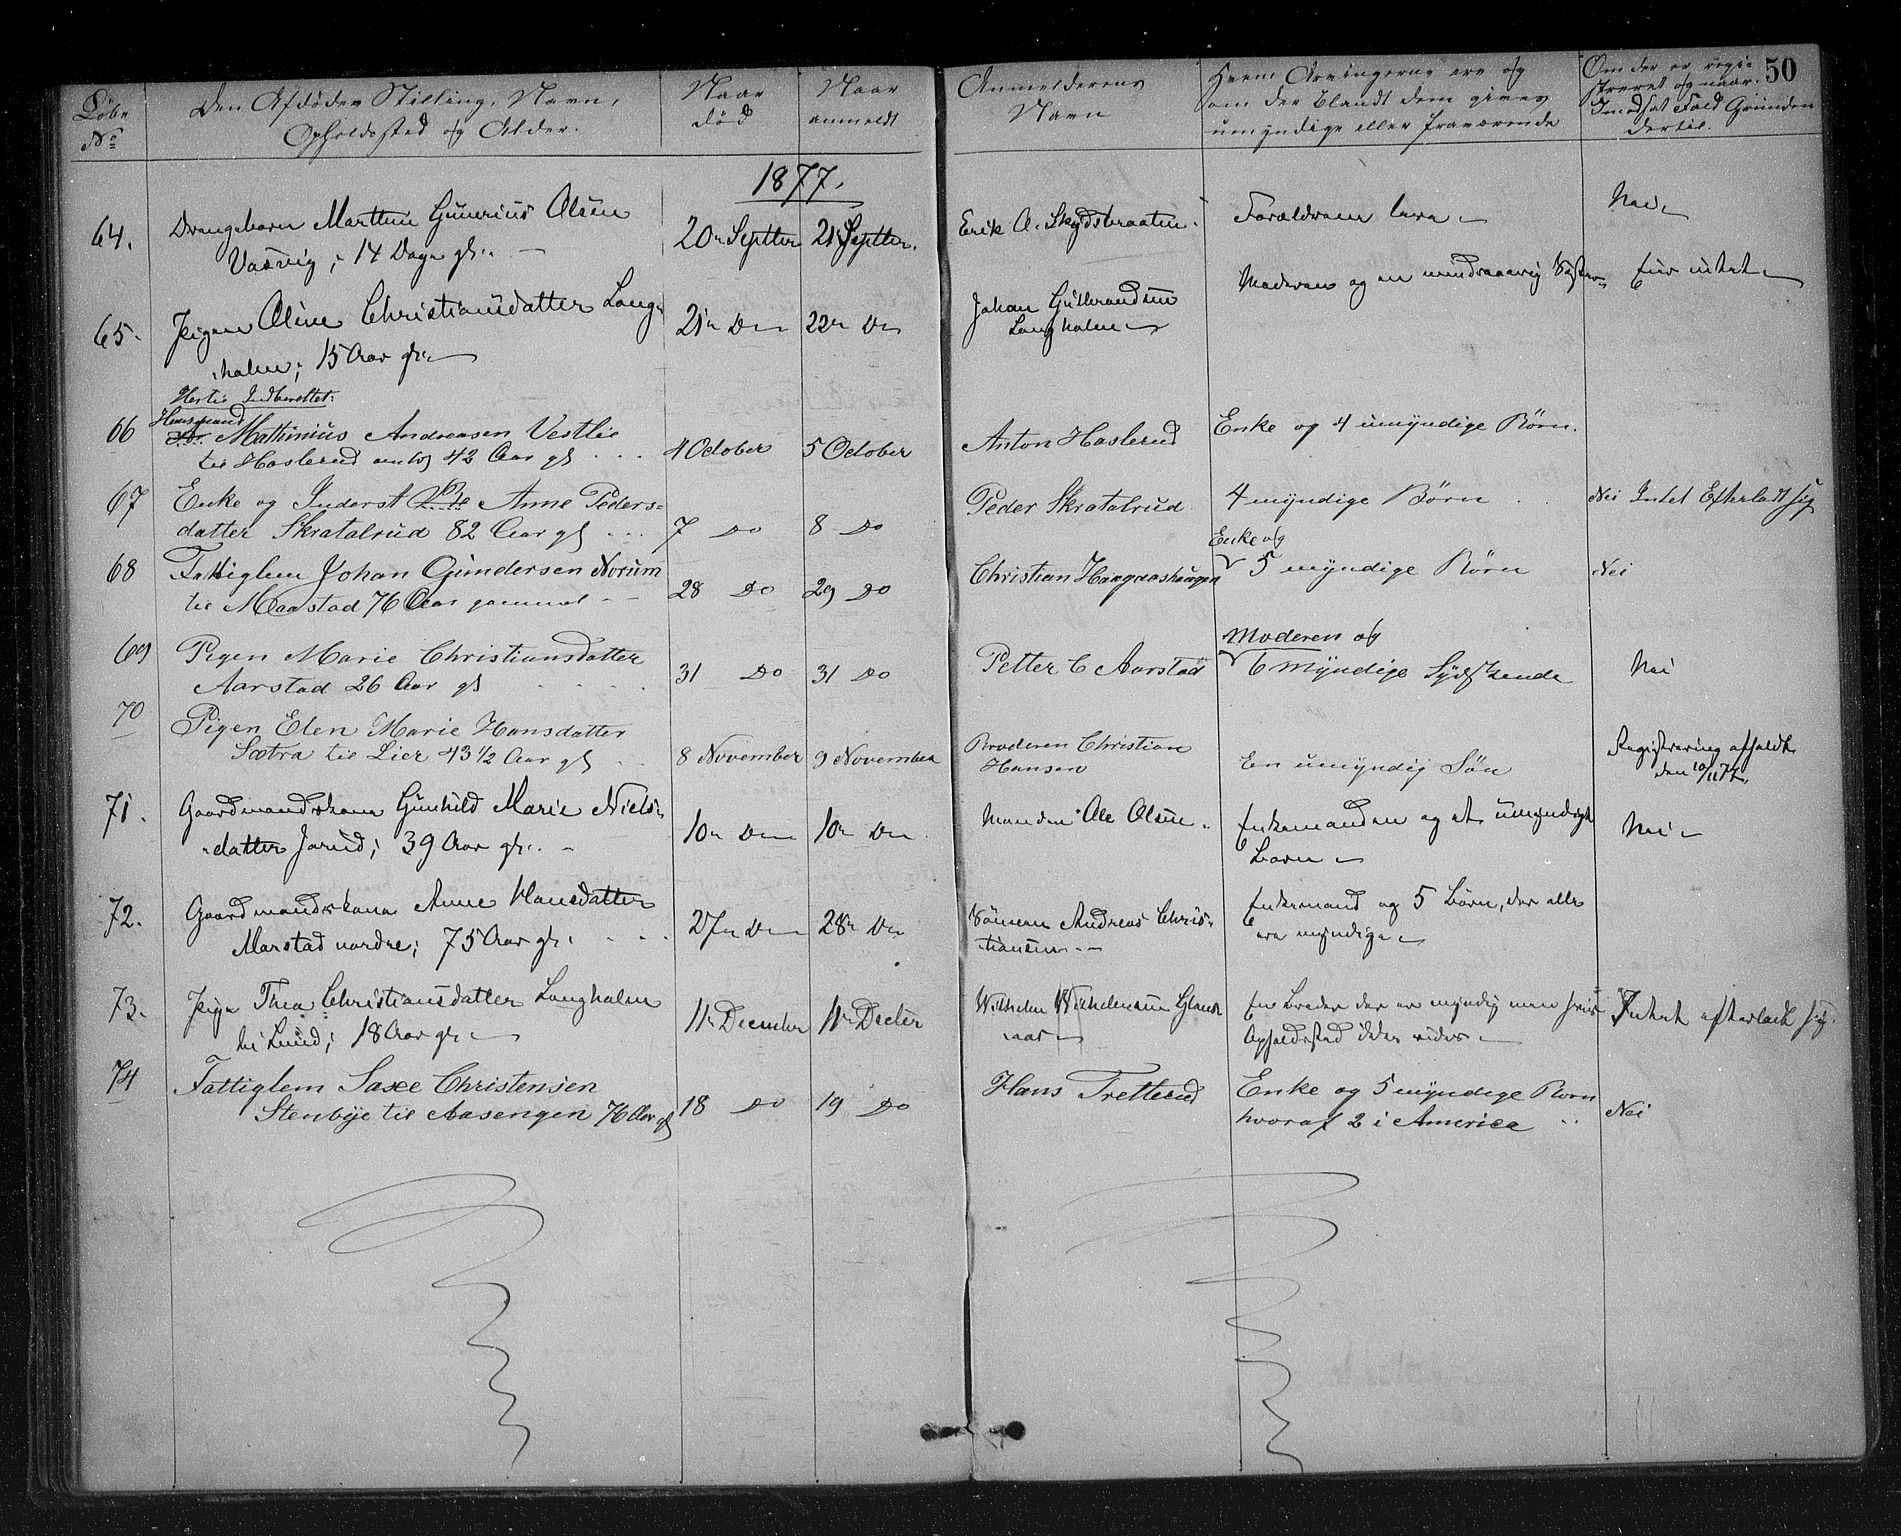 50
Løbe
No
Den Afdødes Stilling, Navn,
Opholdssted og Alder.
Naar
død
Naar
anmeldt
Anmelderens
Navn
Hvem Arvingerne ere og
om der blandt dem gives
umyndige eller fraværende
Om der er regi-
streret og naar.
I modsat Fald Grunden
dertil.
1877.
64.
Drengebarn Martin Gunerius Olsen
14 Dage gl.
20 Septber
21 Septber.
Erik O. Skydsbraaten.
Forældrene leve
Nei
65.
Pigen Oline Christiansdatter Lang-
holm; 15 Aar gl.
21 Do
22 Do
Johan Gulbrandsen
Langholm
Moderen og en mindreaarig Søster
Eier intet
Hertil Indberettet:
66
Huusmand
Mathinius Andreasen Vestlie
til Haslerud omtr. 42 Aar gl
4 October
5 October
Anton Haslerud
Enke og 4 umyndige Børn.
67
Enke og Inderst Anne Peders=
datter Skratalrud 82 Aar gl
7 Do
8 Do
Peder Skratalrud
4 myndige Børn
Nei Intet Efterladt sig
68
Fattiglem Johan Gundersen Norum
til Maastad 76 Aar gammel
28 Do
29 Do
Christian Haagaashaugen
Enke og
5 myndige Børn
Nei
69
Pigen Marie Christiansdatter
Aarstad 26 Aar gl
31 Do
31 Do
Petter C Aarstad
Moderen og
6 Myndige Sydskende
Nei
70
Pigen Elen Marie Hansdatter
Sætra til Lier 43 1/2 Aar gl
8 November
9 November
Broderen Christian
Hansen
En umyndig Søn
Registrering afholdt
den 10/11 77.
71.
Gaardmandskone Gunhild Marie Niels-
datter Jarud; 39 Aar gl.
10 Do
10 Do
Manden Ole Olsen.
Enkemanden og et umyndigt
Barn
Nei
72.
Gaardmandskone Anne Hansdatter
Marstad nordre; 75 Aar gl.
27 Do
28 Do
Sønnen Andreas Chris-
tiansen
Enkemand og 5 Børn, der alle
ere myndige
73.
Pige Thea Christiansdatter Langholm
til Lund; 18 Aar gl.
11 December
11 Decber
Wilhelm Wilhelmsen
En Broder der er myndig men hvis
Opholdssted ikke vides
Intet efterladt sig.
74
Fattiglem Saxe Christensen
Stenbye til Aasengen 76 Aar gl
18 Do
19 Do
Hans Tretterud
Enke og 5 myndige Børn
hvoraf 2 i America
Nei